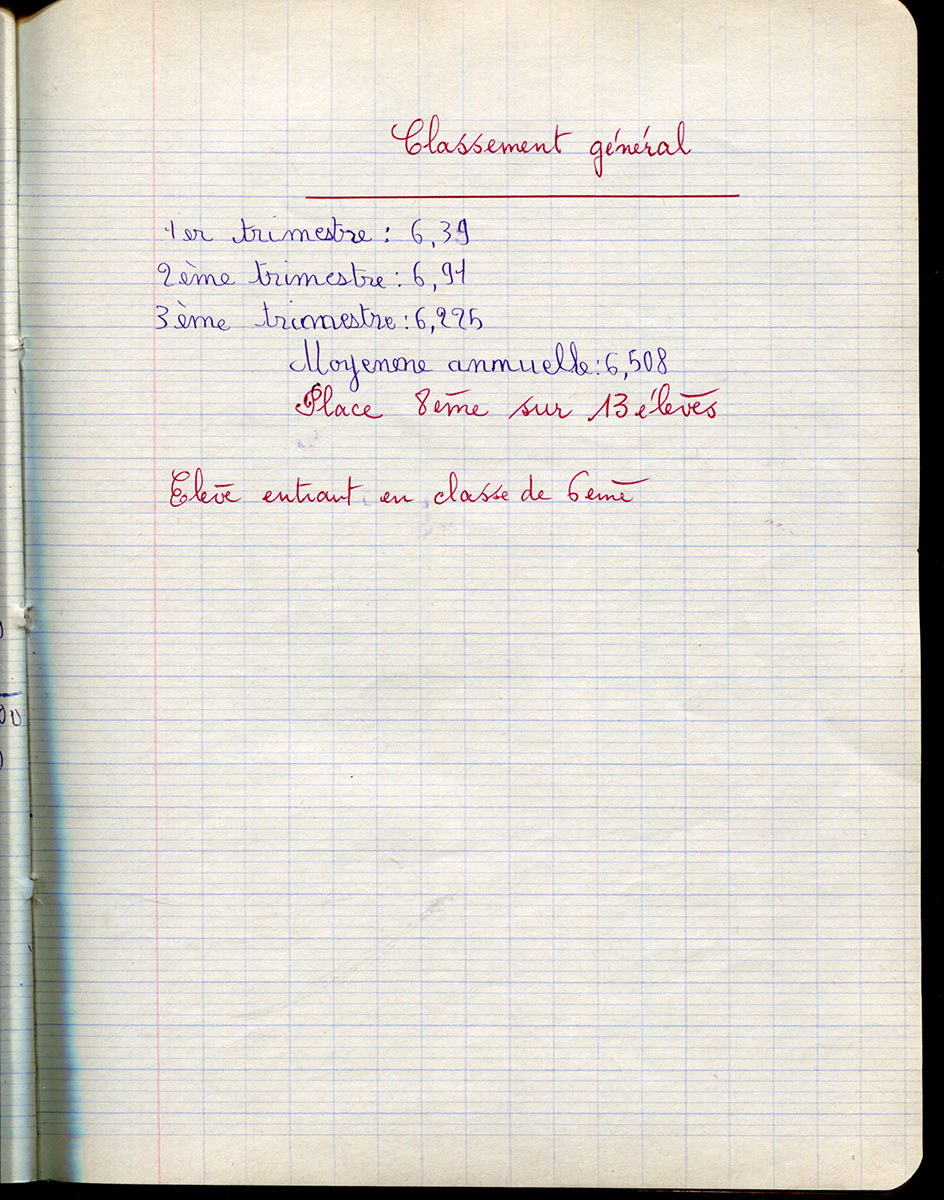 Classement général
1er trimestre : 6,39
2ème trimestre : 6,91
3ème trimestre : 6,225
Moyenne annuelle : 6,508
Place 8ème sur 13 élèves
Elève entrant en classe de 6ème